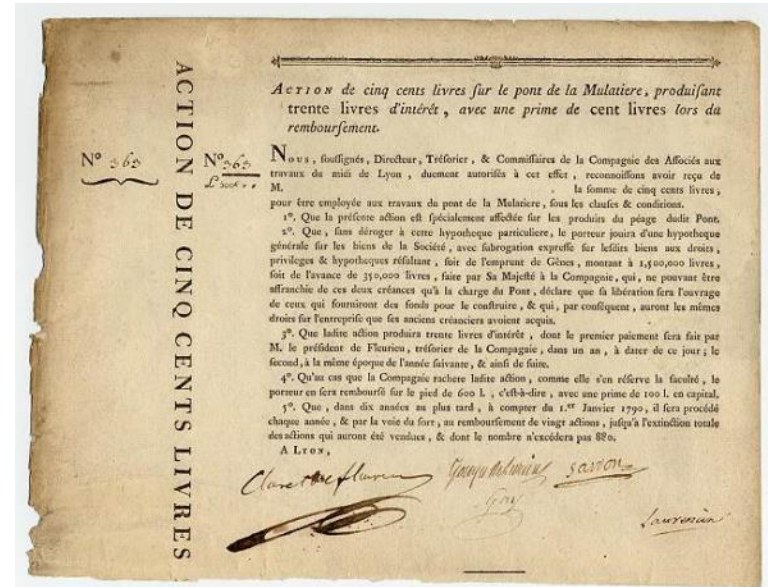 ACTION DE CINQ CENTS LIVRES
Nº 363
Nº 363
ACTION de cinq cents livres ſur le pont de la Mulatiere, produiſant
trente livres d'intérêt, avec une prime de cent livres lors du
rembourſement.
NOUS, ſouſſignés, Directeur, Tréſorier, & Commiſſaires de la Compagnie des Aſſociés aux
travaux du midi de Lyon, duement autoriſés à cet effet, reconnoiſſons avoir reçu de
M. la ſomme de cinq cents livres;
pour être employée aux travaux du pont de la Mulatiere, ſous les clauſes & conditions.
1º. Que la préſente action eſt ſpécialement affectée ſur les produits du péage dudit Pont.
2º. Que, ſans déroger à cette hypotheque particuliere, le porteur jouira d'une hypotheque
générale ſur les biens de la Société, avec ſubrogation expreſſe ſur leſdits biens aux droits,
privileges & hypotheques réſultant, ſoit de l'emprunt de Gênes, montant à 1,500,000 livres,
ſoit de l'avance de 350,000 livres, faite par Sa Majeſté à la Compagnie, qui, ne pouvant être
affranchie de ces deux créances qu'à la charge du Pont, déclare que ſa libération ſera l'ouvrage
de ceux qui fourniront des fonds pour le conſtruire, & qui, par conſéquent, auront les mêmes
droits ſur l'entrepriſe que ſes anciens créanciers avoient acquis.
3º. Que ladite action produira trente livres d'intérêt, dont le premier paiement ſera fait par
M. le préſident de Fleurieu, tréſorier de la Compagnie, dans un an, à dater de ce jour; le
ſecond, à la même époque de l'année ſuivante, & ainſi de ſuite.
4º. Qu'au cas que la Compagnie rachere ladite action, comme elle s'en réſerve la faculté, le
porteur en ſera rembourſé ſur le pied de 600 l., c'eſt-à-dire, avec une prime de 100 l. en capital.
5º. Que, dans dix années au plus tard, à compter du 1.er Janvier 1790, il ſera procédé
chaque année, & par la voie du ſort, au rembourſement de vingt actions, juſqu'à l'extinction totale
des actions qui auront été vendues, & dont le nombre n'excédera pas 880.
A LYON,
Savon
Laurencin